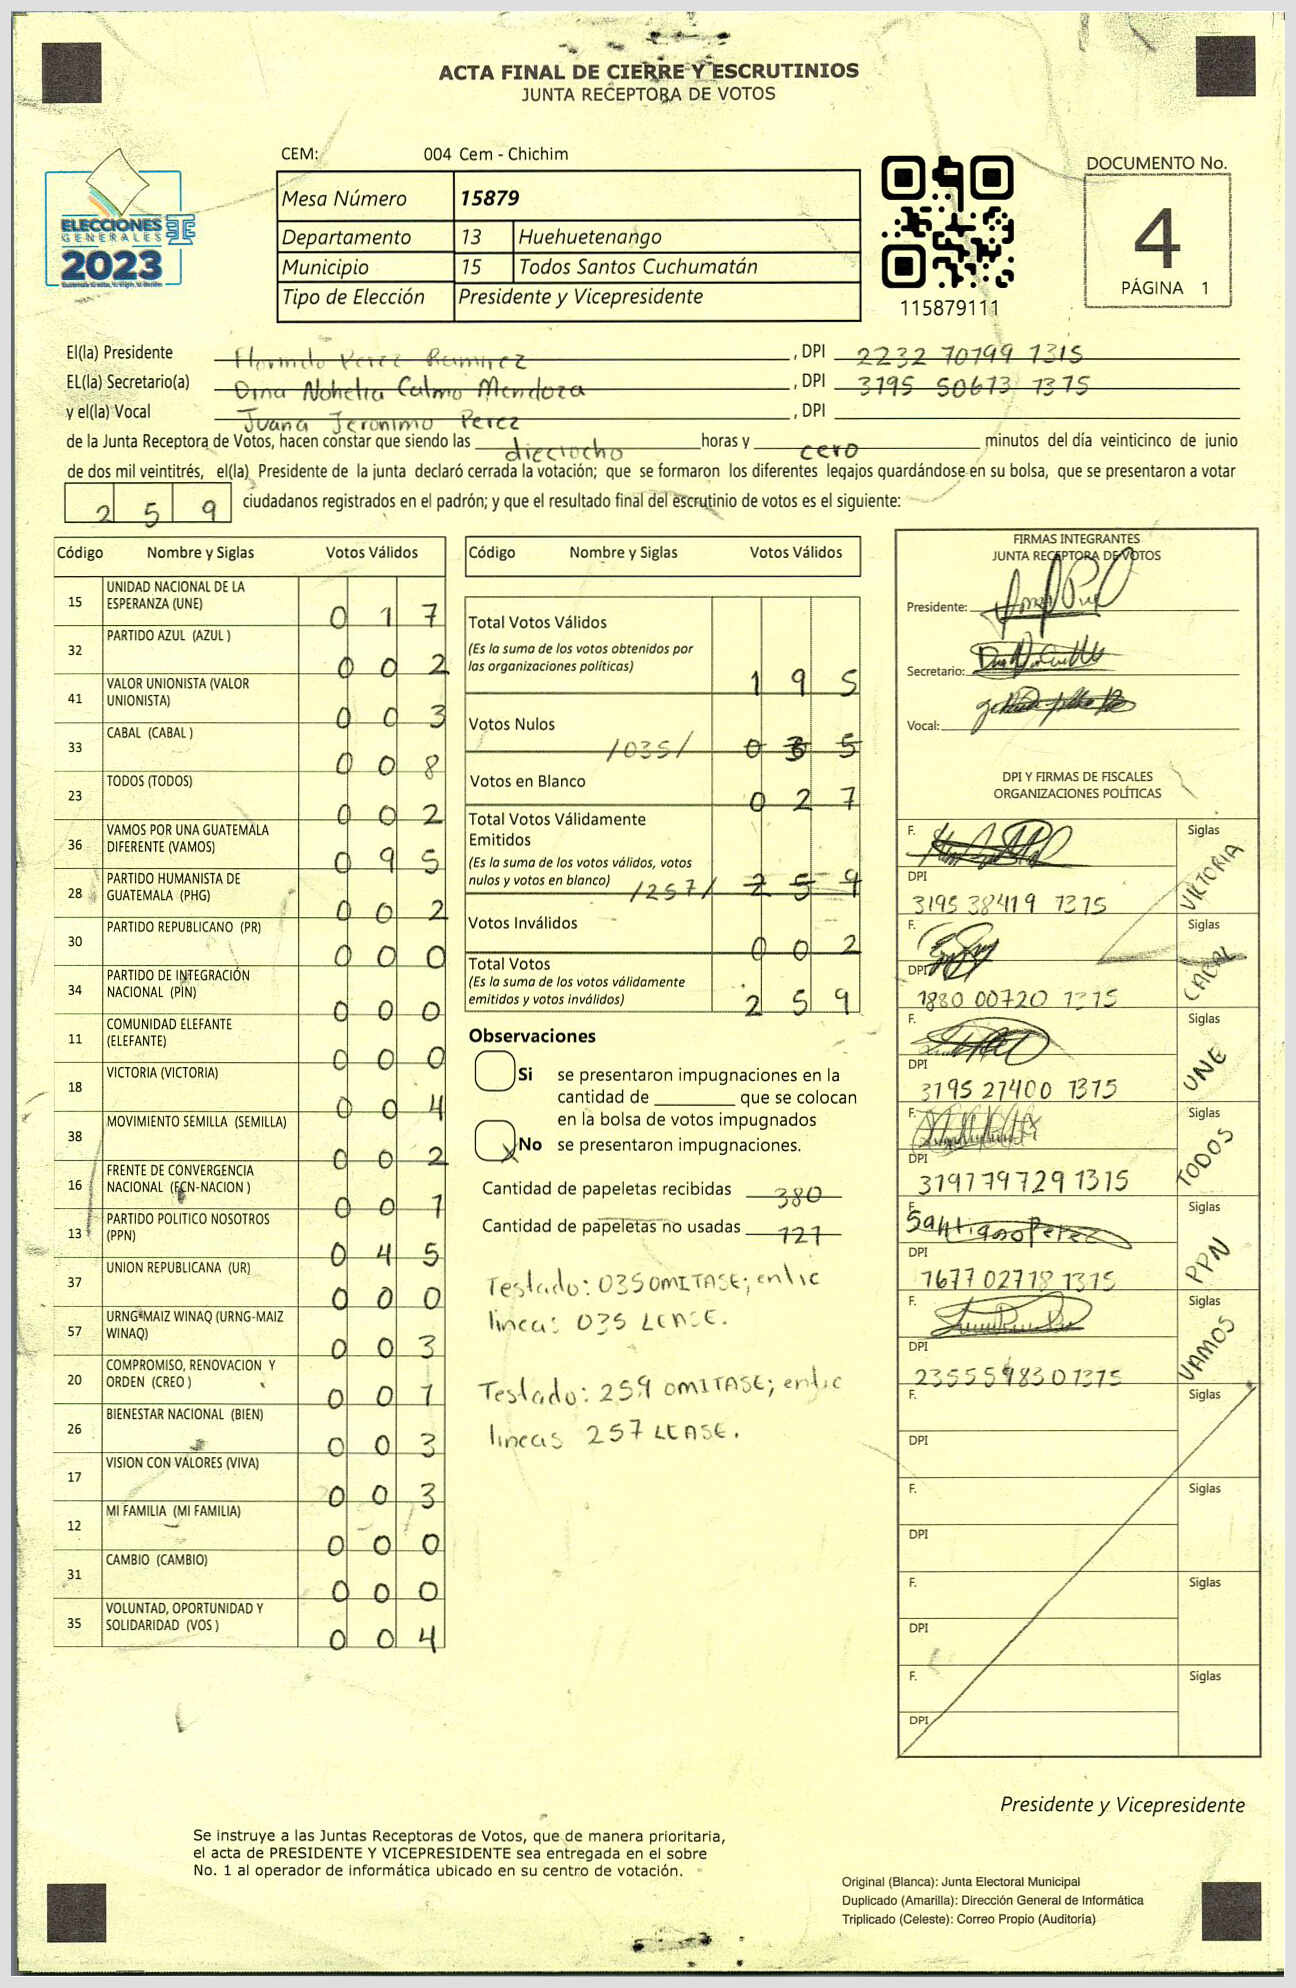 ACTA FINAL DE CIERRE Y ESCRUTINIOS
JUNTA RECEPTORA DE VOTOS
CEM: 004 Cem - Chichim
ELECCIONES
GENERALES
2023
Mesa Número 15879
Departamento 13 Huehuetenango
Municipio 15 Todos Santos Cuchumatán
Tipo de Elección Presidente y Vicepresidente
115879111
DOCUMENTO No.
4
PÁGINA 1
El(la) Presidente Perez Ramirez , DPI 2232 70799 1315
EL(la) Secretario(a) Dina Nohelia Calmo Mendoza , DPI 3195 50673 1315
y el(la) Vocal Juana Jeronimo Perez , DPI
de la Junta Receptora de Votos, hacen constar que siendo las dieciocho horas y cero minutos del día veinticinco de junio
de dos mil veintitrés, el(la) Presidente de la junta declaró cerrada la votación; que se formaron los diferentes legajos guardándose en su bolsa, que se presentaron a votar
259 ciudadanos registrados en el padrón; y que el resultado final del escrutinio de votos es el siguiente:
Código Nombre y Siglas Votos Válidos
15 UNIDAD NACIONAL DE LA
ESPERANZA (UNE) 017
32 PARTIDO AZUL (AZUL ) 002
41 VALOR UNIONISTA (VALOR
UNIONISTA) 003
33 CABAL (CABAL ) 008
23 TODOS (TODOS) 002
36 VAMOS POR UNA GUATEMALA
DIFERENTE (VAMOS) 095
28 PARTIDO HUMANISTA DE
GUATEMALA (PHG) 002
30 PARTIDO REPUBLICANO (PR) 000
34 PARTIDO DE INTEGRACIÓN
NACIONAL (PIN) 000
11 COMUNIDAD ELEFANTE
(ELEFANTE) 000
18 VICTORIA (VICTORIA) 004
38 MOVIMIENTO SEMILLA (SEMILLA) 002
16 FRENTE DE CONVERGENCIA
NACIONAL (FCN-NACION ) 001
13 PARTIDO POLITICO NOSOTROS
(PPN) 045
37 UNION REPUBLICANA (UR) 000
57 URNG-MAIZ WINAQ (URNG-MAIZ
WINAQ) 003
20 COMPROMISO, RENOVACION Y
ORDEN (CREO ) 001
26 BIENESTAR NACIONAL (BIEN) 003
17 VISION CON VALORES (VIVA) 003
12 MI FAMILIA (MI FAMILIA) 000
31 CAMBIO (CAMBIO) 000
35 VOLUNTAD, OPORTUNIDAD Y
SOLIDARIDAD (VOS ) 004
Código Nombre y Siglas Votos Válidos
Total Votos Válidos
(Es la suma de los votos obtenidos por
las organizaciones políticas) 195
Votos Nulos /035/ 035
Votos en Blanco 027
Total Votos Válidamente
Emitidos
(Es la suma de los votos válidos, votos
nulos y votos en blanco) /257/ 259
Votos Inválidos 002
Total Votos
(Es la suma de los votos válidamente
emitidos y votos inválidos) 259
Observaciones
Si se presentaron impugnaciones en la
cantidad de que se colocan
en la bolsa de votos impugnados
X No se presentaron impugnaciones.
Cantidad de papeletas recibidas 380
Cantidad de papeletas no usadas 121
Testado: 035 OMITASE; entre
lineas 035 LEASE.
Testado: 259 OMITASE; entre
lineas 257 LEASE.
FIRMAS INTEGRANTES
JUNTA RECEPTORA DE VOTOS
Presidente:
Secretario:
Vocal:
DPI Y FIRMAS DE FISCALES
ORGANIZACIONES POLÍTICAS
F. Siglas VICTORIA
DPI 3195 38419 1315
F. Siglas CABAL
DPI 1880 00720 1315
F. Siglas UNE
DPI 3195 27400 1315
F. Siglas TODOS
DPI 3197797291315
F. Santiago Perez Siglas PPN
DPI 1677 02718 1315
F. Siglas VAMOS
DPI 2355598301315
F. Siglas
DPI
F. Siglas
DPI
F. Siglas
DPI
F. Siglas
DPI
Presidente y Vicepresidente
Se instruye a las Juntas Receptoras de Votos, que de manera prioritaria,
el acta de PRESIDENTE Y VICEPRESIDENTE sea entregada en el sobre
No. 1 al operador de informática ubicado en su centro de votación.
Original (Blanca): Junta Electoral Municipal
Duplicado (Amarilla): Dirección General de Informática
Triplicado (Celeste): Correo Propio (Auditoría)